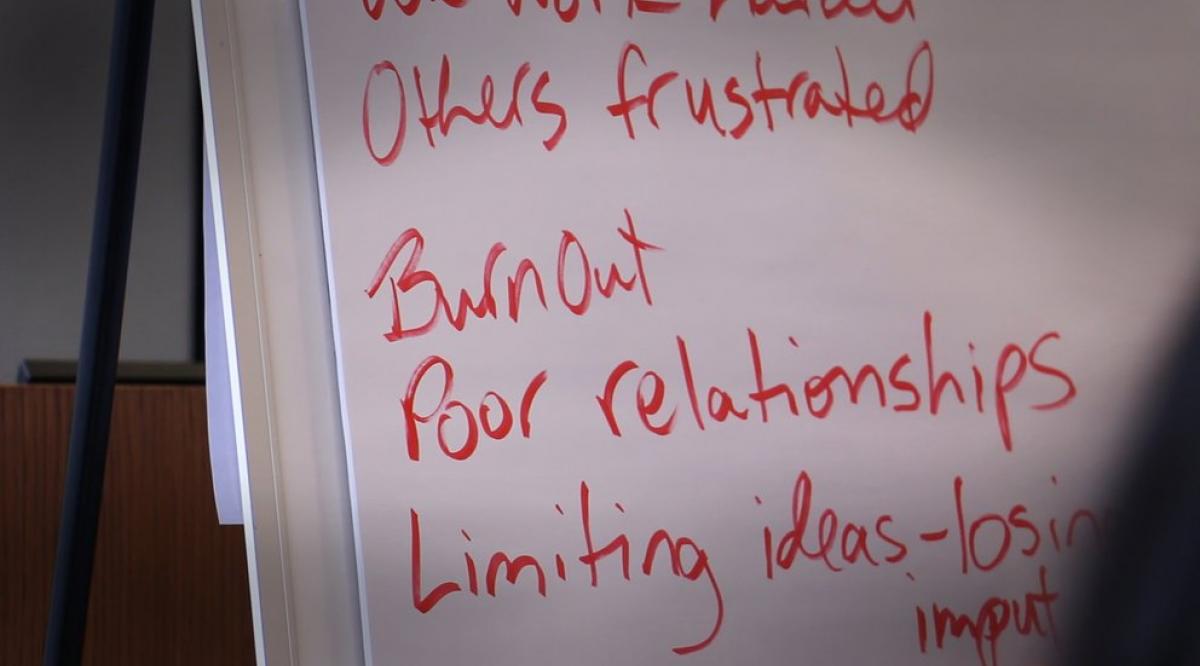 we work harder
Others frustrated
BurnOut
Poor relationships
Limiting ideas-losin
imput